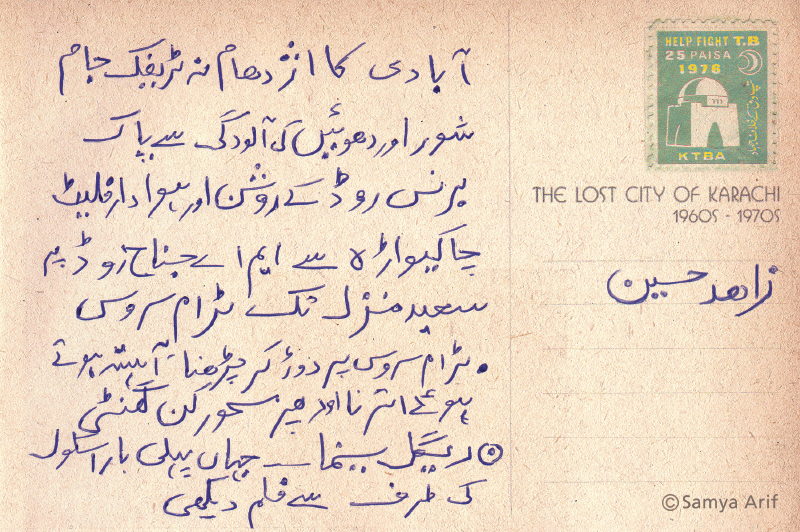 آبادی کا اژدھام نہ ٹریفک جام
شور اور دھوئیں کی آلودگی سے پاک
برنس روڈ کے روشن اور ہوادار فلیٹ
چاکیواڑہ سے ایم اے جناح روڈ پہ
سعید منزل تک ٹرام سروس
ٹرام سروس پر دوڑ کر چڑھنا - آہستہ ہوتے
ہوئے اترنا اور پھر سحور کن گھنٹی
ریگل سینما - جہاں پہلی بار اسکول
کی طرف سے فلم دیکھی
HELP FIGHT T.B
25 PAISA
1978
KTBA
THE LOST CITY OF KARACHI
1960S - 1970S
زاھد حسین
©Samya Arif